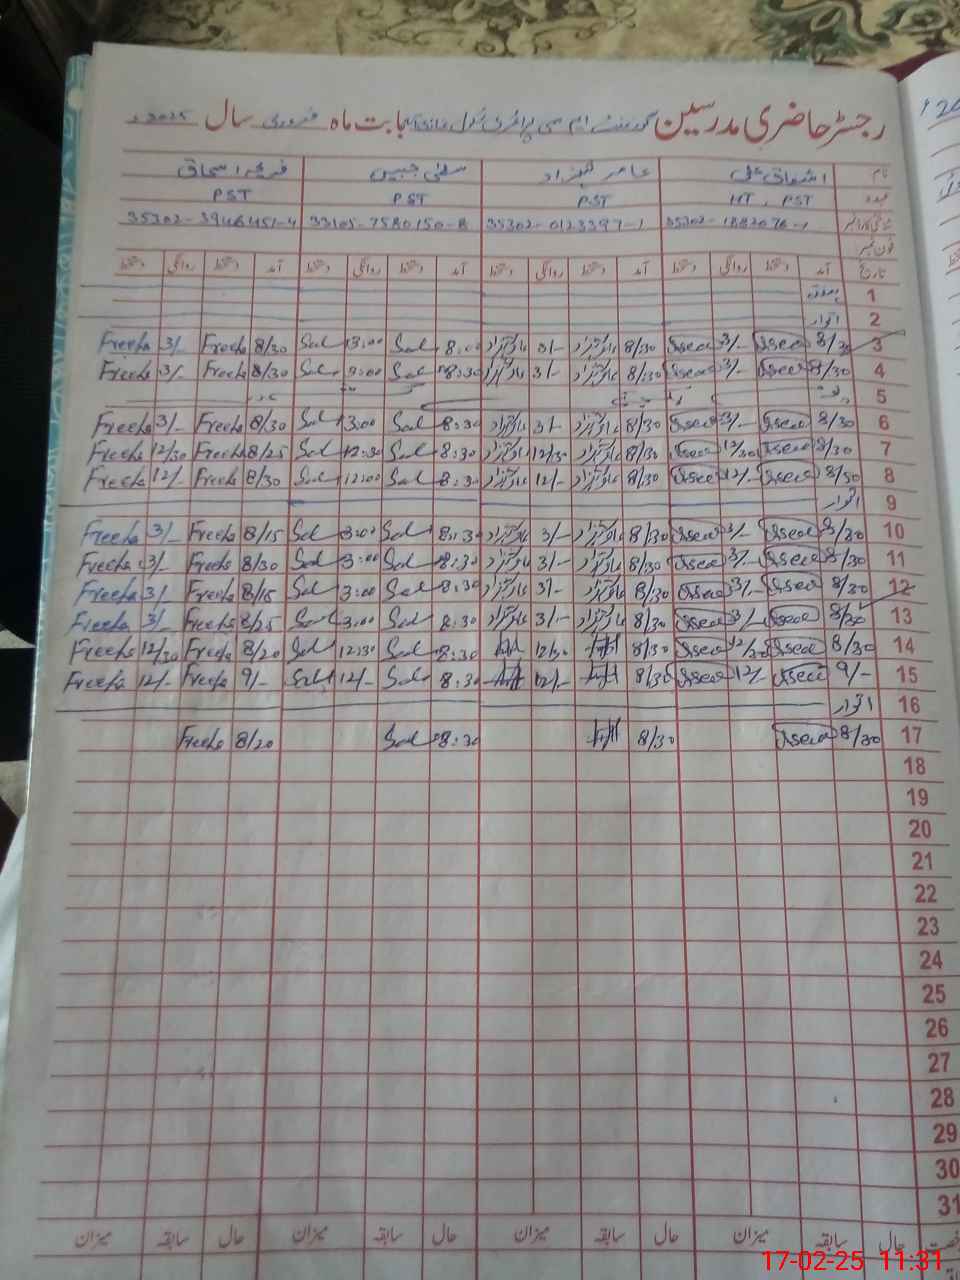 رجسٹر حاضری مدرسین گورنمنٹ ایم سی پرائمری سکول بابت ماہ فروری سال 2025ء
نام اشفاق علی عامر شہزاد سلمیٰ جبیں فریحہ اسحاق
عہدہ HT, PST PST PST PST
شناختی کارڈ نمبر 35302-1882076-1 35302-0123397-1 33105-7580150-8 35302-3946451-4
فون نمبر
تاریخ آمد دستخط روانگی دستخط آمد دستخط روانگی دستخط آمد دستخط روانگی دستخط آمد دستخط روانگی دستخط
1
2 اتوار
3 8/30 3/- 8/30 3/- 8:00 Sal 3:00 Sal 8/30 Freeha 3/- Freeha
4 8/30 3/- 8/30 3/- 8:30 Sal 3:00 Sal 8/30 Freeha 3/- Freeha
5
6 8/30 3/- 8/30 3/- 8:30 Sal 3:00 Sal 8/30 Freeha 3/- Freeha
7 8/30 12/30 8/30 12/30 8:30 Sal 12:30 Sal 8/25 Freeha 12/30 Freeha
8 8/30 12/- 8/30 12/- 8:30 Sal 12:00 Sal 8/30 Freeha 12/- Freeha
9 اتوار
10 8/30 3/- 8/30 3/- 8:30 Sal 3:00 Sal 8/15 Freeha 3/- Freeha
11 8/30 3/- 8/30 3/- 8:30 Sal 3:00 Sal 8/30 Freeha 3/- Freeha
12 8/30 3/- 8/30 3/- 8:30 Sal 3:00 Sal 8/15 Freeha 3/- Freeha
13 8/30 3/- 8/30 3/- 8:30 Sal 3:00 Sal 8/25 Freeha 3/- Freeha
14 8/30 12/30 8/30 12/30 8:30 Sal 12:30 Sal 8/20 Freeha 12/30 Freeha
15 9/- 12/- 8/30 12/- 8:30 Sal 12/- Sal 9/- Freeha 12/- Freeha
16 اتوار
17 8/30 8/30 8:30 Sal 8/20 Freeha
18
19
20
21
22
23
24
25
26
27
28
29
30
31
حال سابقہ میزان حال سابقہ میزان حال سابقہ میزان حال سابقہ میزان
17-02-25 11:31